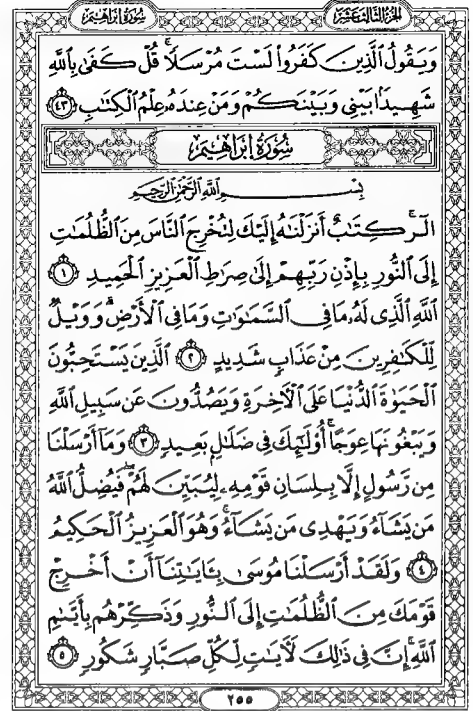 سُورَةُ إِبْرَاهِيم الجُزْءُ الثَّالِثَ عَشَرَ
وَيَقُولُ ٱلَّذِينَ كَفَرُوا۟ لَسْتَ مُرْسَلًا ۚ قُلْ كَفَىٰ بِٱللَّهِ
شَهِيدًۢا بَيْنِى وَبَيْنَكُمْ وَمَنْ عِندَهُۥ عِلْمُ ٱلْكِتَٰبِ ٤٣
سُورَةُ إِبْرَاهِيمَ
بِسْمِ ٱللَّهِ ٱلرَّحْمَٰنِ ٱلرَّحِيمِ
الٓر ۚ كِتَٰبٌ أَنزَلْنَٰهُ إِلَيْكَ لِتُخْرِجَ ٱلنَّاسَ مِنَ ٱلظُّلُمَٰتِ
إِلَى ٱلنُّورِ بِإِذْنِ رَبِّهِمْ إِلَىٰ صِرَٰطِ ٱلْعَزِيزِ ٱلْحَمِيدِ ١
ٱللَّهِ ٱلَّذِى لَهُۥ مَا فِى ٱلسَّمَٰوَٰتِ وَمَا فِى ٱلْأَرْضِ ۗ وَوَيْلٌ
لِّلْكَٰفِرِينَ مِنْ عَذَابٍ شَدِيدٍ ٢ ٱلَّذِينَ يَسْتَحِبُّونَ
ٱلْحَيَوٰةَ ٱلدُّنْيَا عَلَى ٱلْءَاخِرَةِ وَيَصُدُّونَ عَن سَبِيلِ ٱللَّهِ
وَيَبْغُونَهَا عِوَجًا ۚ أُو۟لَٰٓئِكَ فِى ضَلَٰلٍۭ بَعِيدٍ ٣ وَمَآ أَرْسَلْنَا
مِن رَّسُولٍ إِلَّا بِلِسَانِ قَوْمِهِۦ لِيُبَيِّنَ لَهُمْ ۖ فَيُضِلُّ ٱللَّهُ
مَن يَشَآءُ وَيَهْدِى مَن يَشَآءُ ۚ وَهُوَ ٱلْعَزِيزُ ٱلْحَكِيمُ
٤ وَلَقَدْ أَرْسَلْنَا مُوسَىٰ بِـَٔايَٰتِنَآ أَنْ أَخْرِجْ
قَوْمَكَ مِنَ ٱلظُّلُمَٰتِ إِلَى ٱلنُّورِ وَذَكِّرْهُم بِأَيَّىٰمِ
ٱللَّهِ ۚ إِنَّ فِى ذَٰلِكَ لَءَايَٰتٍ لِّكُلِّ صَبَّارٍ شَكُورٍ ٥
٢٥٥